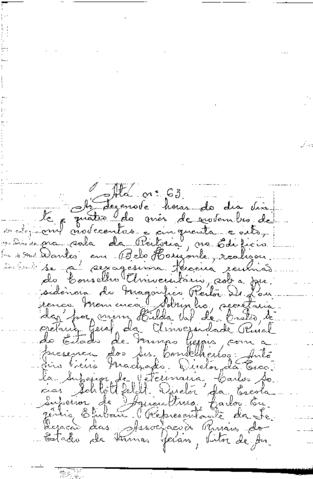 Ata nº 63
Às dezenove horas do dia vin-
te e quatro do mês de novembro de
mil novecentos e cinquenta e oito,
na sala da Reitoria, no Edifício
Dantés, em Belo Horizonte, realizou-
se a sexagésima terceira reunião
do Conselho Universitário, sob a pre-
sidência do Magnífico Reitor
secretaria-
da por mim, Hilda de Castro Se-
cretária Geral da Universidade Rural
do Estado de Minas Gerais, com a
presença dos srs. Conselheiros: Antô-
nio Machado, Diretor da Esco-
la Superior de Veterinária, Carlos So-
cias Schlottfeldt, Diretor da Escola
Superior de Agricultura, Carlos Eu-
gênio, Representante da Fe-
deração das Associações Rurais do
Estado de Minas Gerais,